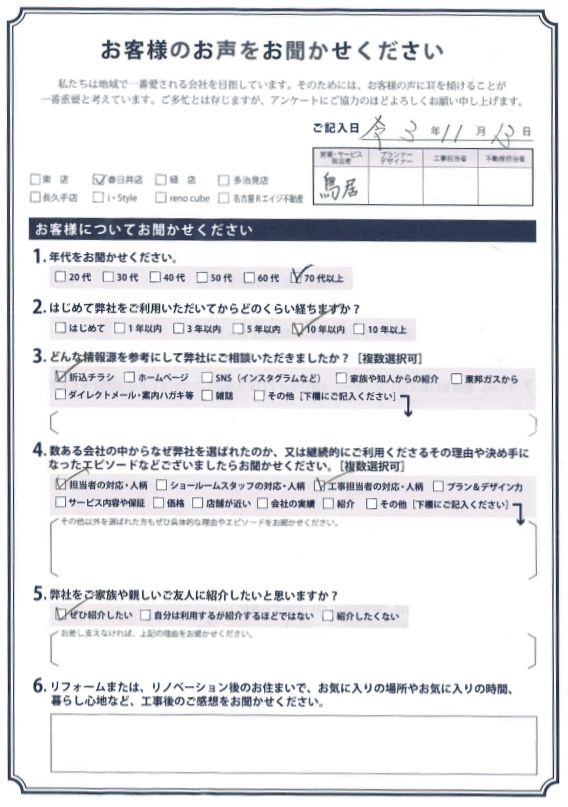 お客様のお声をお聞かせください
私たちは地域で一番愛される会社を目指しています。そのためには、お客様の声に耳を傾けることが
一番重要と考えています。ご多忙とは存じますが、アンケートにご協力のほどよろしくお願い申し上げます。
ご記入日 令 3 年 11 月 13 日
営業・サービス担当者 プランナーデザイナー 工事担当者 不動産担当者
鳥居
□東 店 ☑春日井店 □緑 店 □多治見店
□長久手店 □i・Style □reno cube □名古屋Rエイジ不動産
お客様についてお聞かせください
1. 年代をお聞かせください。
□20代 □30代 □40代 □50代 □60代 ☑70代以上
2. はじめて弊社をご利用いただいてからどのくらい経ちますか?
□はじめて □1年以内 □3年以内 □5年以内 ☑10年以内 □10年以上
3. どんな情報源を参考にして弊社にご相談いただきましたか?[複数選択可]
☑折込チラシ □ホームページ □SNS(インスタグラムなど) □家族や知人からの紹介 □東邦ガスから
□ダイレクトメール・案内ハガキ等 □雑誌 □その他[下欄にご記入ください]
4. 数ある会社の中からなぜ弊社を選ばれたのか、又は継続的にご利用くださるその理由や決め手に
なったエピソードなどございましたらお聞かせください。[複数選択可]
☑担当者の対応・人柄 □ショールームスタッフの対応・人柄 ☑工事担当者の対応・人柄 □プラン&デザイン力
□サービス内容や保証 □価格 □店舗が近い □会社の実績 □紹介 □その他[下欄にご記入ください]
その他以外を選ばれた方もぜひ具体的な理由やエピソードをお聞かせください。
5. 弊社をご家族や親しいご友人に紹介したいと思いますか?
☑ぜひ紹介したい □自分は利用するが紹介するほどではない □紹介したくない
お差し支えなければ、上記の理由をお聞かせください。
6. リフォームまたは、リノベーション後のお住まいで、お気に入りの場所やお気に入りの時間、
暮らし心地など、工事後のご感想をお聞かせください。